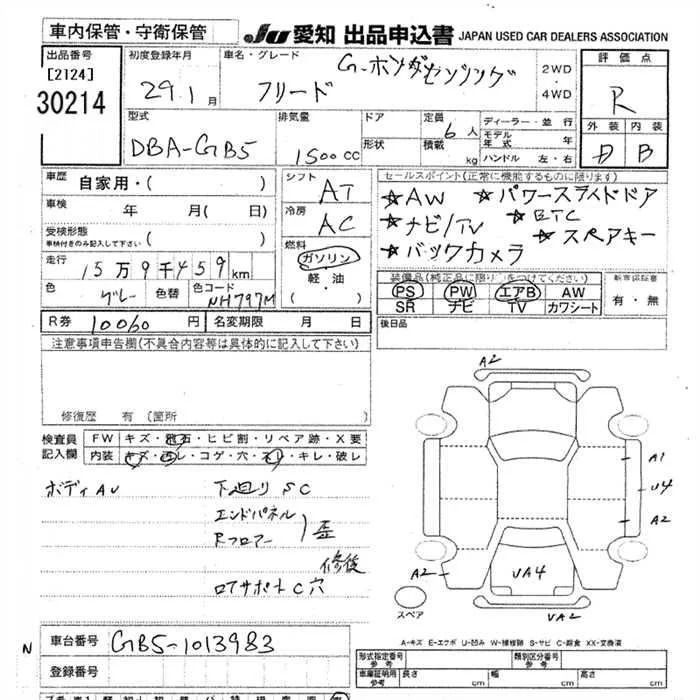 車内保管・守衛保管
JU 愛知 出品申込書 JAPAN USED CAR DEALERS ASSOCIATION
出品番号
[2124]
30214
初度登録年月
29.1月
車名・グレード
G-ホンダセンシング
フリード
2WD
4WD
評価点
R
外装 内装
B
型式
DBA-GB5
排気量
1500cc
ドア
形状
定員 6人
積載 kg
ディーラー・並行
モデル年式 年
ハンドル 左・右
車歴 自家用・( )
車検 年 月( 日)
受検形態
車検付きのみ記入して下さい ( )
走行 15万9千459km
色 グレー 色替 色コード NH797M
シフト AT
冷房 AC
燃料
ガソリン
軽油
( )
セールスポイント(正常に機能するものに限ります)
☆AW ☆パワースライドドア
☆ナビ/TV ☆ETC
☆スペアキー
☆バックカメラ
装備品(純正品に限り○をつけてください)
PS PW エアB AW
SR ナビ TV カワシート
新車保証書
有・無
R券 10060円 名変期限 月 日
後日品
注意事項申告欄(不具合内容等は具体的に記入して下さい)
修復歴 有 (箇所
検査員記入欄
FW キズ・飛石・ヒビ割・リペア跡・X要
内装 キズ・汚レ・コゲ・穴・スレ・キレ・破レ
ボディAU 下廻りSC
エンドパネル
Rフロアー
歪
修復
ロアサポートC穴
A2
A1
U4
A2
A2
UA4
UA2
スペア
A-キズ E-エクボ U-凹み W-補修跡 S-サビ C-腐食 XX-交換済
N
車台番号 GB5-1013983
登録番号
形式指定番号 参考
類別区分番号 参考
車庫証明用 参考 長さ cm 幅 cm 高さ cm